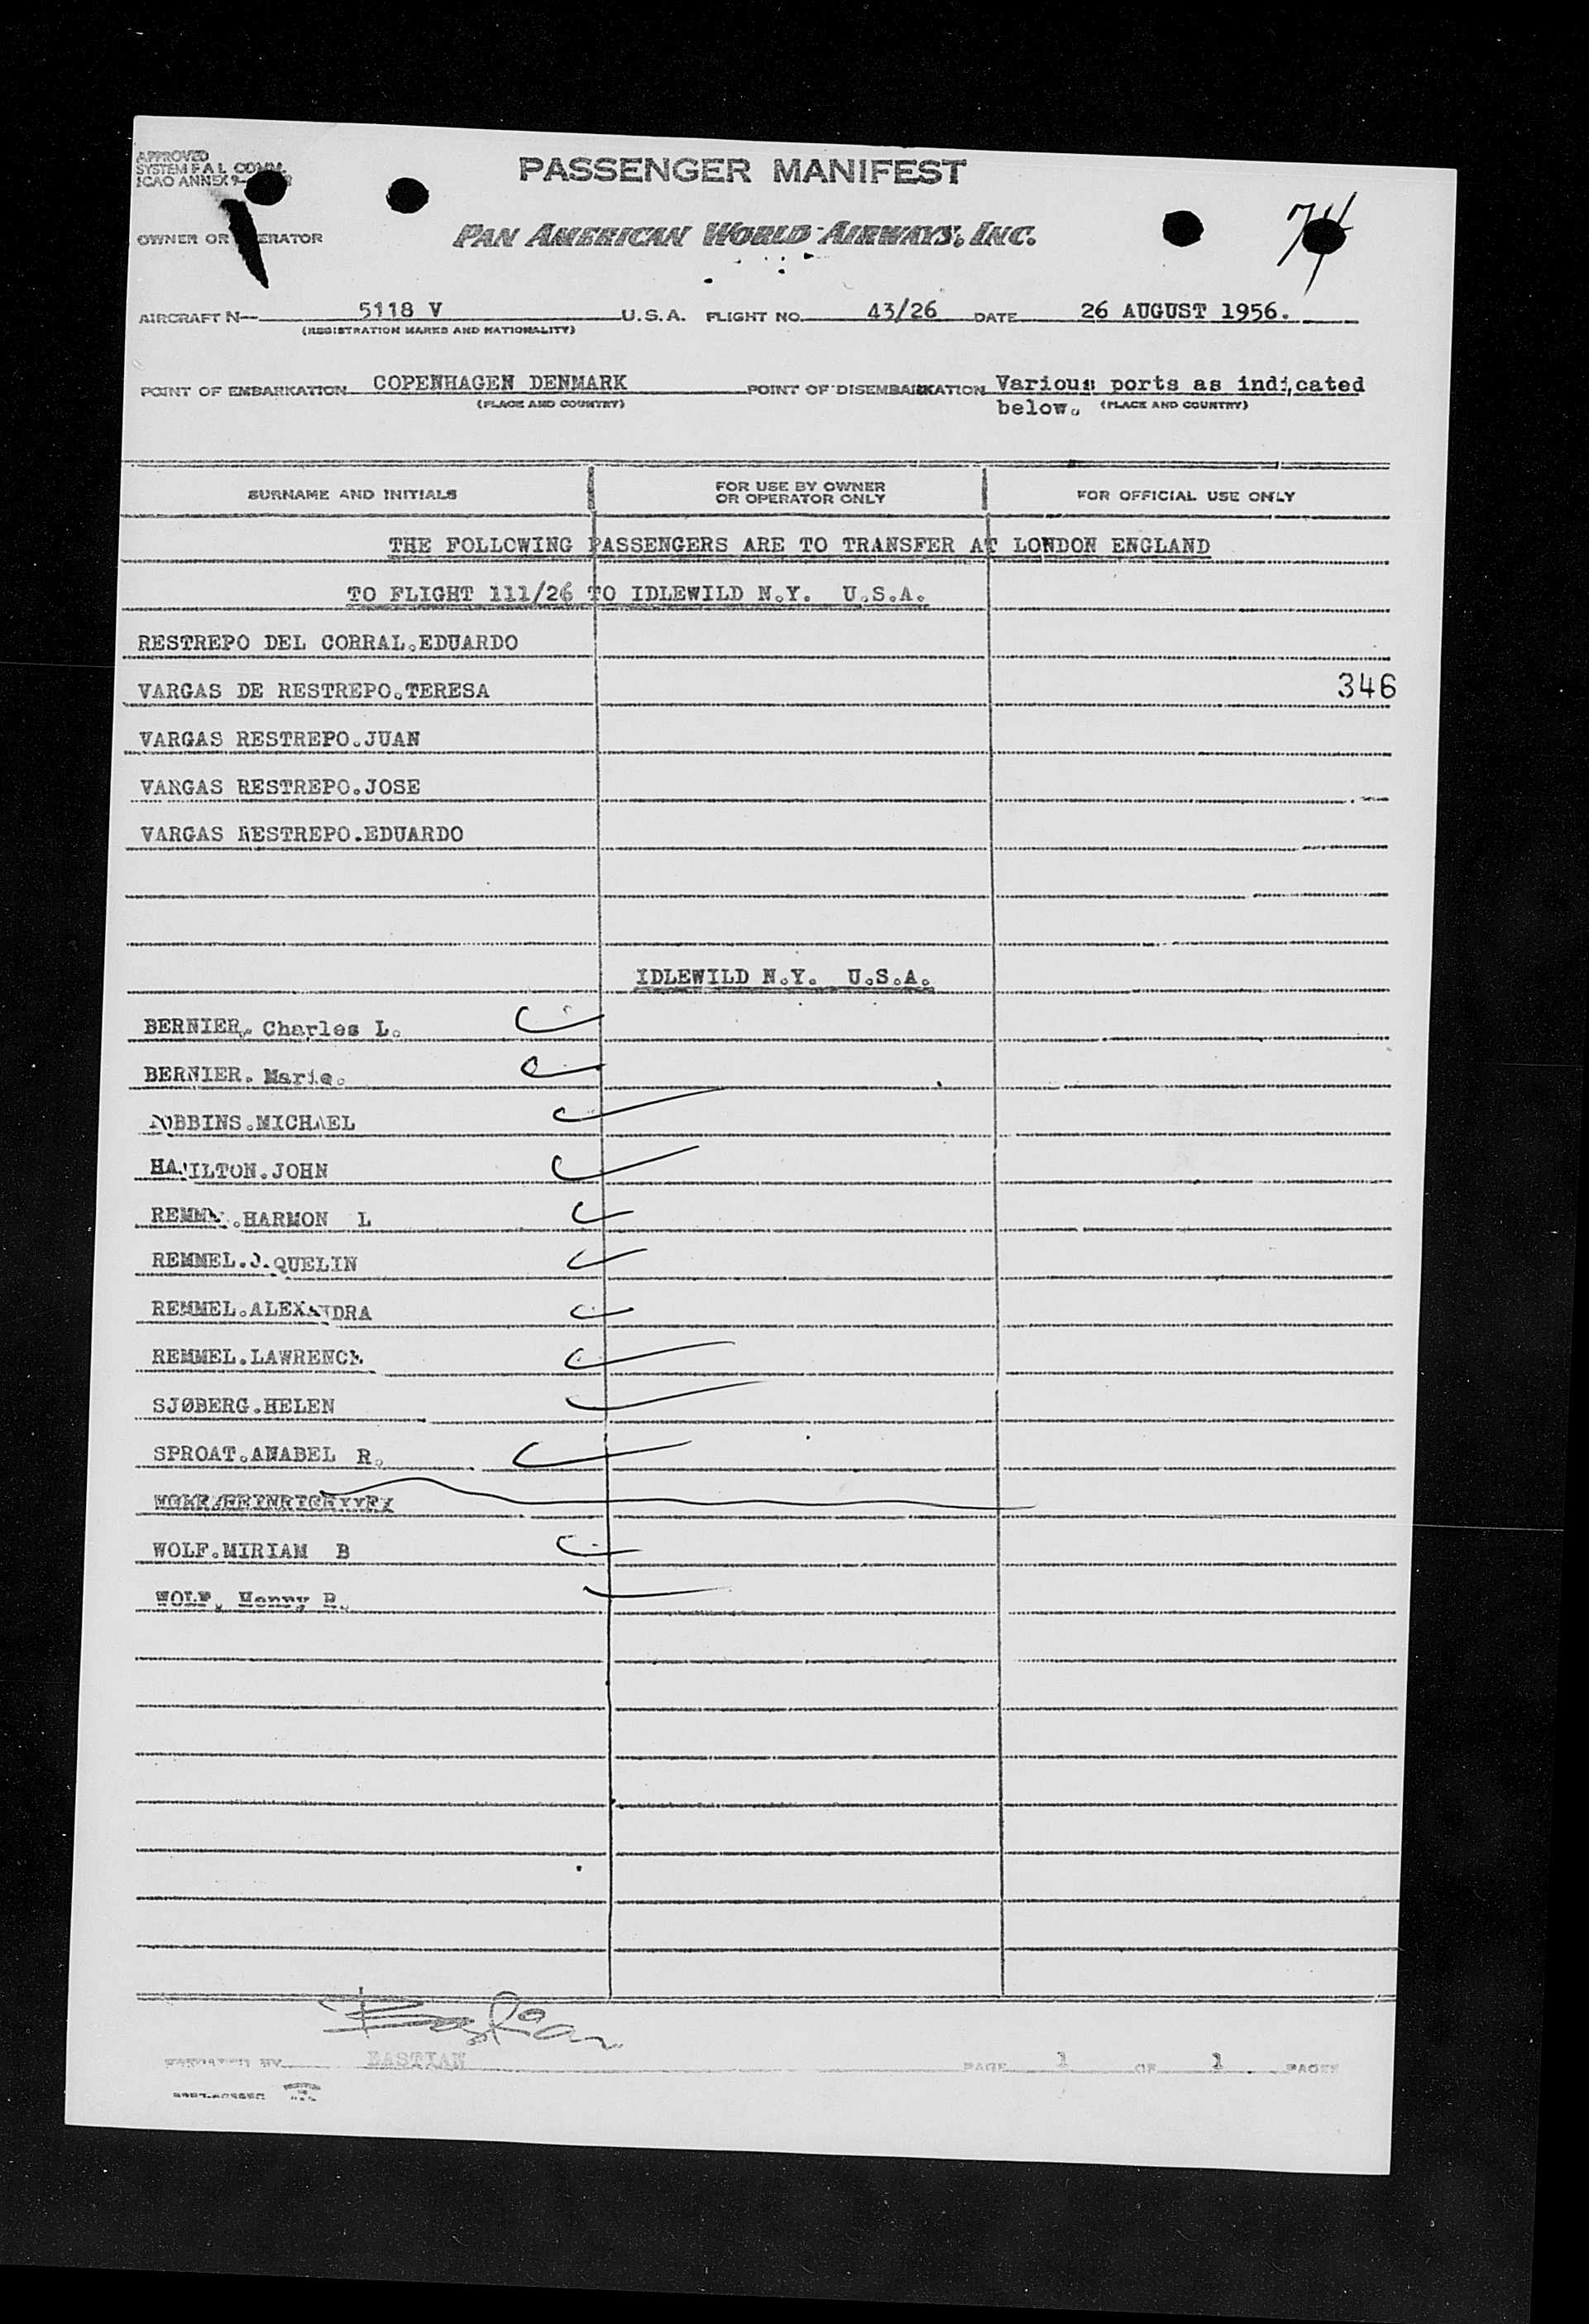 APPROVED
SYSTEM F A L COMM.
ICAO ANNEX 9
PASSENGER MANIFEST
74
OWNER OR OPERATOR
PAN AMERICAN WORLD AIRWAYS, INC.
AIRCRAFT N— 5118 V U.S.A. FLIGHT NO. 43/26 DATE 26 AUGUST 1956.
(REGISTRATION MARKS AND NATIONALITY)
POINT OF EMBARKATION COPENHAGEN DENMARK POINT OF DISEMBARKATION Various ports as indicated
(PLACE AND COUNTRY) below. (PLACE AND COUNTRY)
SURNAME AND INITIALS
FOR USE BY OWNER
OR OPERATOR ONLY
FOR OFFICIAL USE ONLY
THE FOLLOWING PASSENGERS ARE TO TRANSFER AT LONDON ENGLAND
TO FLIGHT 111/26 TO IDLEWILD N.Y. U.S.A.
RESTREPO DEL CORRAL.EDUARDO
VARGAS DE RESTREPO.TERESA 346
VARGAS RESTREPO.JUAN
VARGAS RESTREPO.JOSE
VARGAS RESTREPO.EDUARDO
IDLEWILD N.Y. U.S.A.
BERNIER. Charles L.
BERNIER. Marie.
ROBBINS.MICHAEL
HAMILTON.JOHN
REMMEL.HARMON L
REMMEL.J.QUELIN
REMMEL.ALEXANDRA
REMMEL.LAWRENCE
SJØBERG.HELEN
SPROAT.ANABEL R.
WOLF.MIRIAM B
WOLF. Henry R.
Bastian
PREPARED BY BASTIAN PAGE 1 OF 1 PAGES